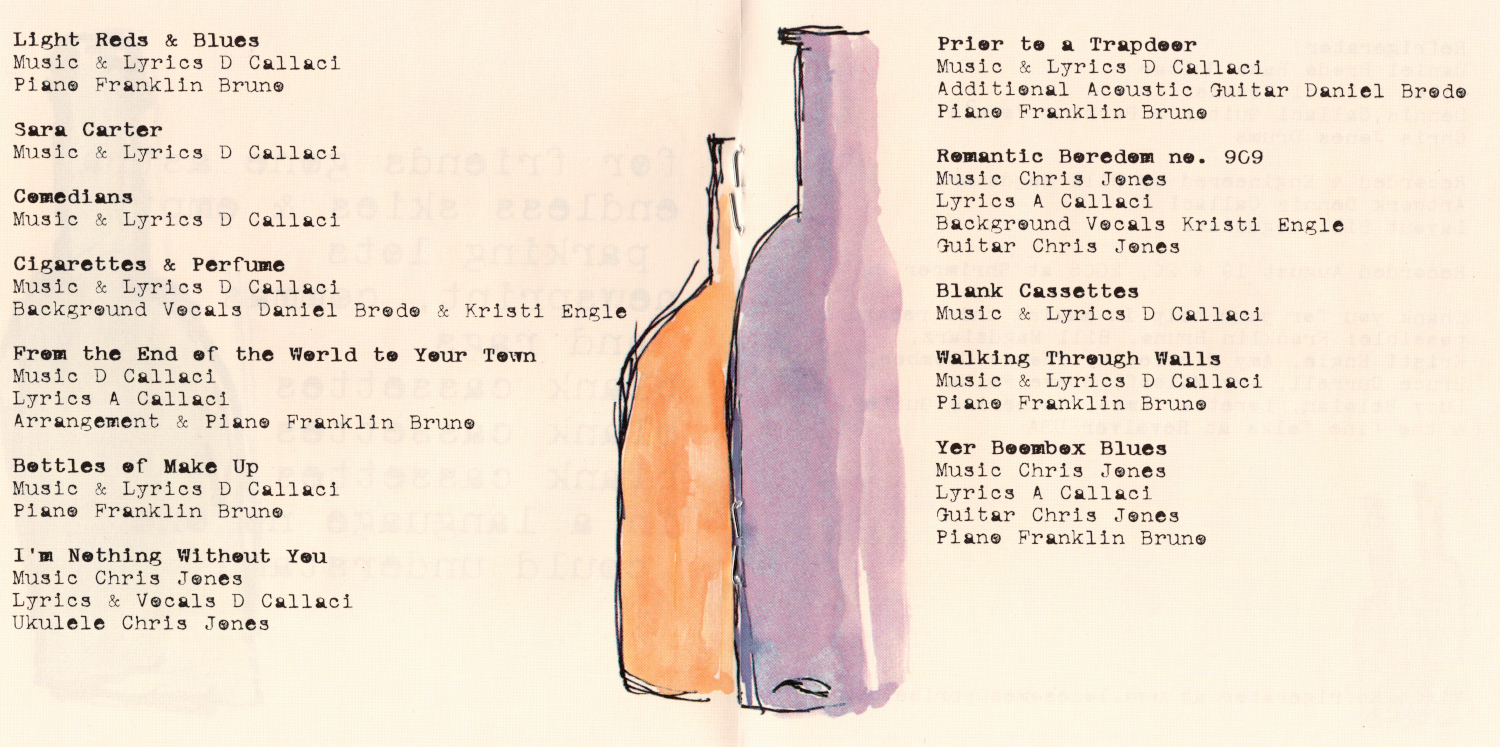 Light Reds & Blues
Music & Lyrics D Callaci
Piano Franklin Bruno
Sara Carter
Music & Lyrics D Callaci
Comedians
Music & Lyrics D Callaci
Cigarettes & Perfume
Music & Lyrics D Callaci
Background Vocals Daniel Brodo & Kristi Engle
From the End of the World to Your Town
Music D Callaci
Lyrics A Callaci
Arrangement & Piano Franklin Bruno
Bottles of Make Up
Music & Lyrics D Callaci
Piano Franklin Bruno
I'm Nothing Without You
Music Chris Jones
Lyrics & Vocals D Callaci
Ukulele Chris Jones
Prior to a Trapdoor
Music & Lyrics D Callaci
Additional Acoustic Guitar Daniel Brodo
Piano Franklin Bruno
Romantic Boredom no. 909
Music Chris Jones
Lyrics A Callaci
Background Vocals Kristi Engle
Guitar Chris Jones
Blank Cassettes
Music & Lyrics D Callaci
Walking Through Walls
Music & Lyrics D Callaci
Piano Franklin Bruno
Yer Boombox Blues
Music Chris Jones
Lyrics A Callaci
Guitar Chris Jones
Piano Franklin Bruno